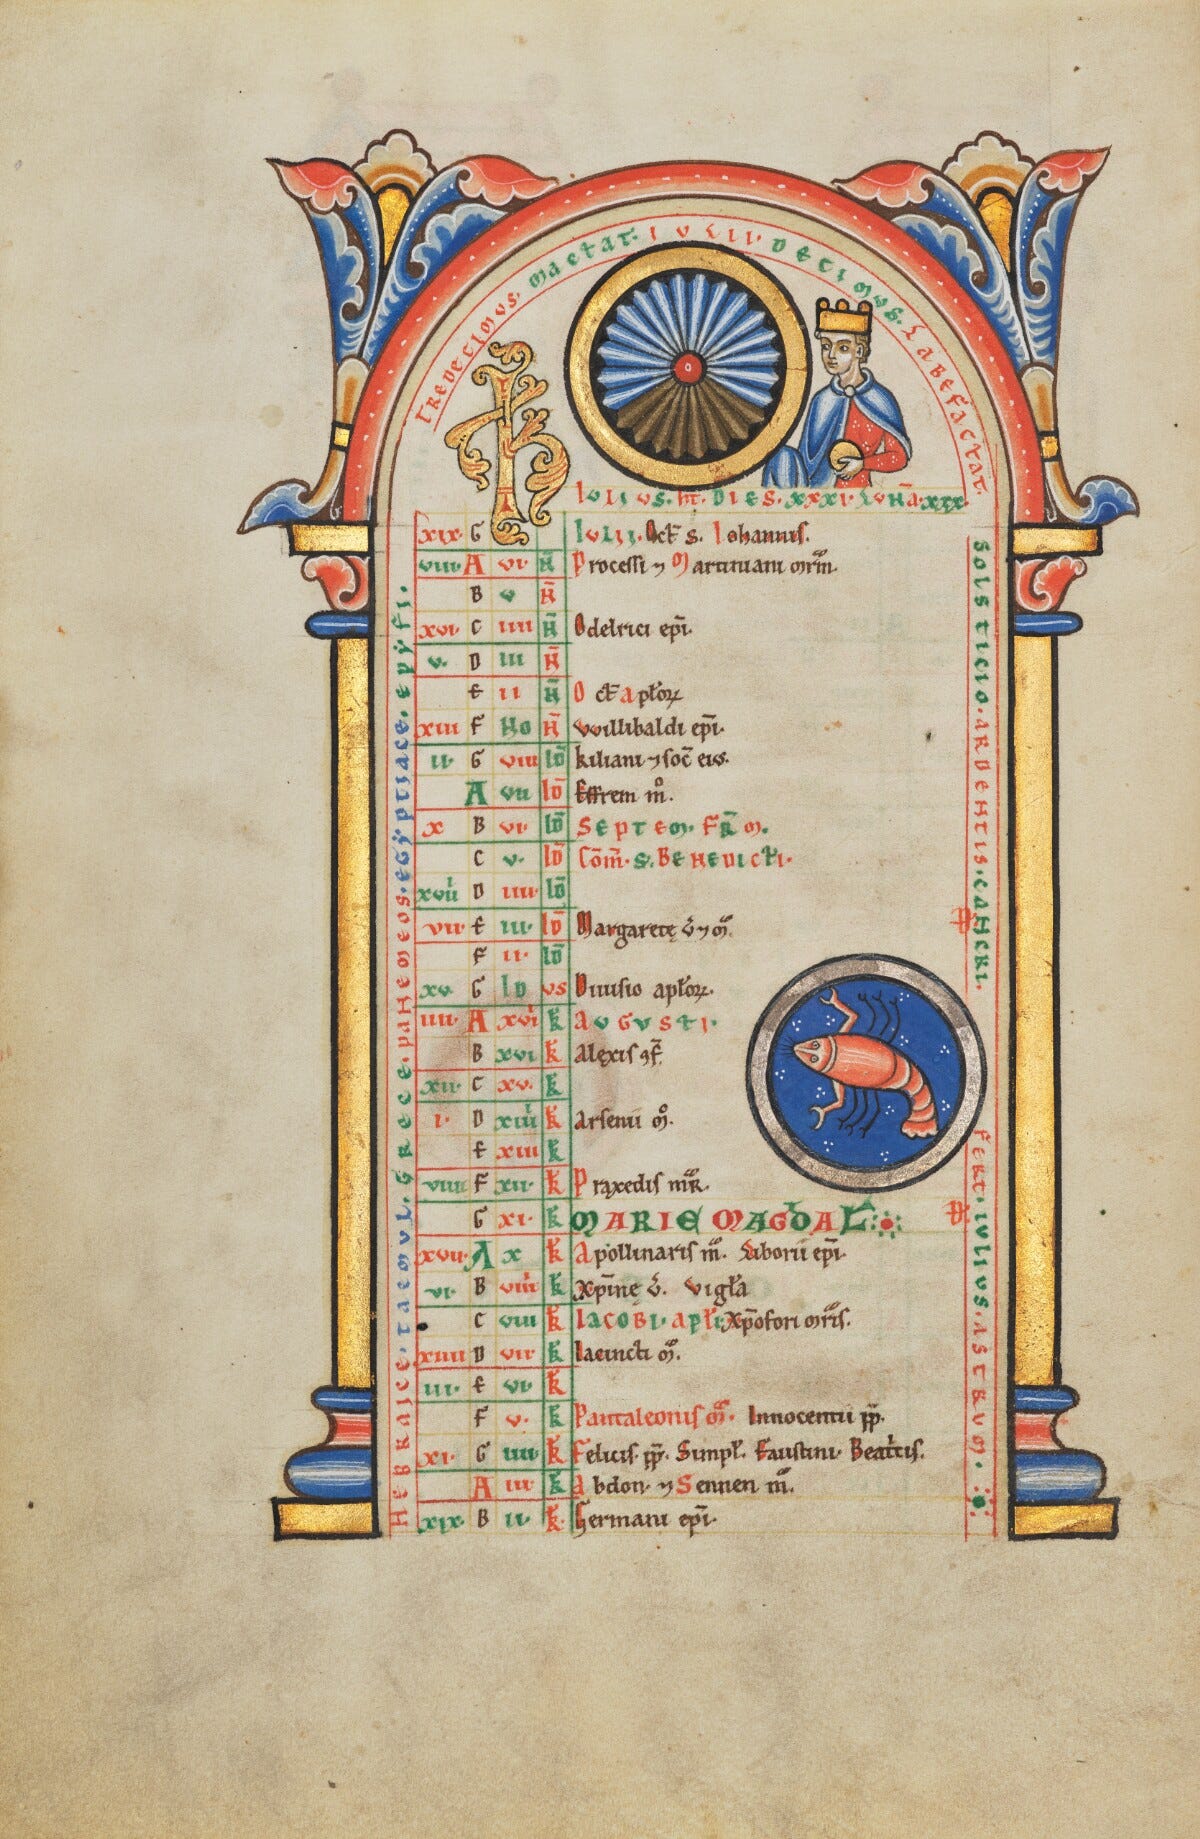 Tredecimus. mactat. Iulii. decimus. labefactat.
KL
Iulius. ht. dies. xxxi. luna. xxx.
xix G Iulii. Oct̄ s. Iohannis.
viii A vi N̄ Processi ⁊ Martiniani mr̄m.
B v N̄
xvi C iiii N̄ Odelrici ep̄i.
v. D iii N̄
E ii N̄ Oct̄ apl̄oꝝ
xiii F No N̄ Willibaldi ep̄i.
ii. G viii ID̄ kiliani ⁊ soc̄ eius.
A vii ID̄ Effrem m̄.
x B vi ID̄ Septem. fr̄m.
C v. ID̄ Com̄. S. Benedicti.
xviii D iiii ID̄
vii E iii. ID̄ Margaretę v̄ ⁊ m̄.
F ii. ID̄
xv. G Id us Diuisio apl̄oꝝ.
iiii. A xvii k̄ Augusti.
B xvi k̄ Alexis 9f̄.
xii. C xv. k̄
i. D xiiii k̄ Arsenii m̄.
E xiii k̄
viiii F xii. k̄ Praxedis
G xi. k̄ Marie Magdal̄.
xvii A x k̄ Apollinaris m̄. Liborii ep̄i.
vi. B viiii k̄ Xp̄inę v̄. Vigl̄a
C viii k̄ Iacobi. apl̄i. Xp̄ofori
xiiii D vii k̄ Iacincti m̄.
iii. E vi. k̄
F v. k̄ Pantaleonis m̄. Innocentii pp̄.
xi. G iiii k̄ Felicis. pp̄. Simpl̄. Faustini. Beat̄cis.
A iii k̄ Abdon. ⁊ Sennen m̄.
xix. B ii. k̄ Germani ep̄i.
Hebraice. Tacmul. Grece. Panemeos. Egÿptiace. Epÿfi.
Solsticio. ardentis. cancri.
fert. Iulius. astrum.